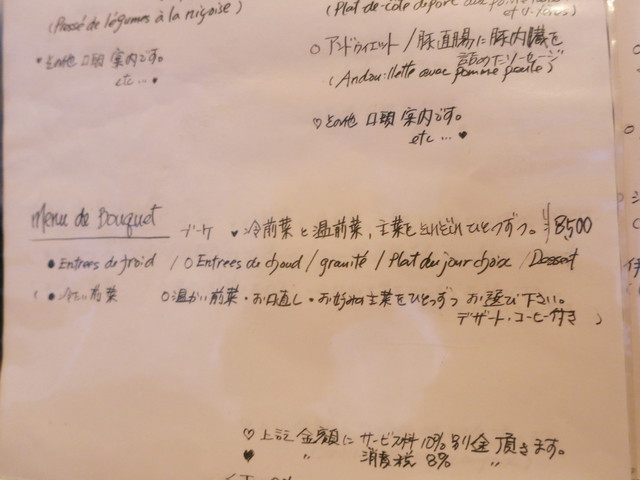 (Passé de légumes à la niçoise)
♥その他 口頭 案内です。
etc...♥
(Plat de-côte de porc aux
○アンドゥイエット/豚直腸に豚内臓を
詰めたソーセージ
(Andouillette avec pomme purée)
♡その他 口頭 案内です。
etc...♥
Menu de Bouquet ブーケ ♥冷前菜と温前菜、主菜をそれぞれひとつずつ。 ¥8500
●Entrees de froid /○Entrees de chaud/granité/Plat du jour choix/Dessert
(●冷たい前菜 ○温かい前菜・お口直し・お好みの主菜をひとつずつ お選び下さい。
デザート・コーヒー付き)
♡上記 金額に サービス料 10% 別金 頂きます。
♥ 〃 消費税 8% 〃